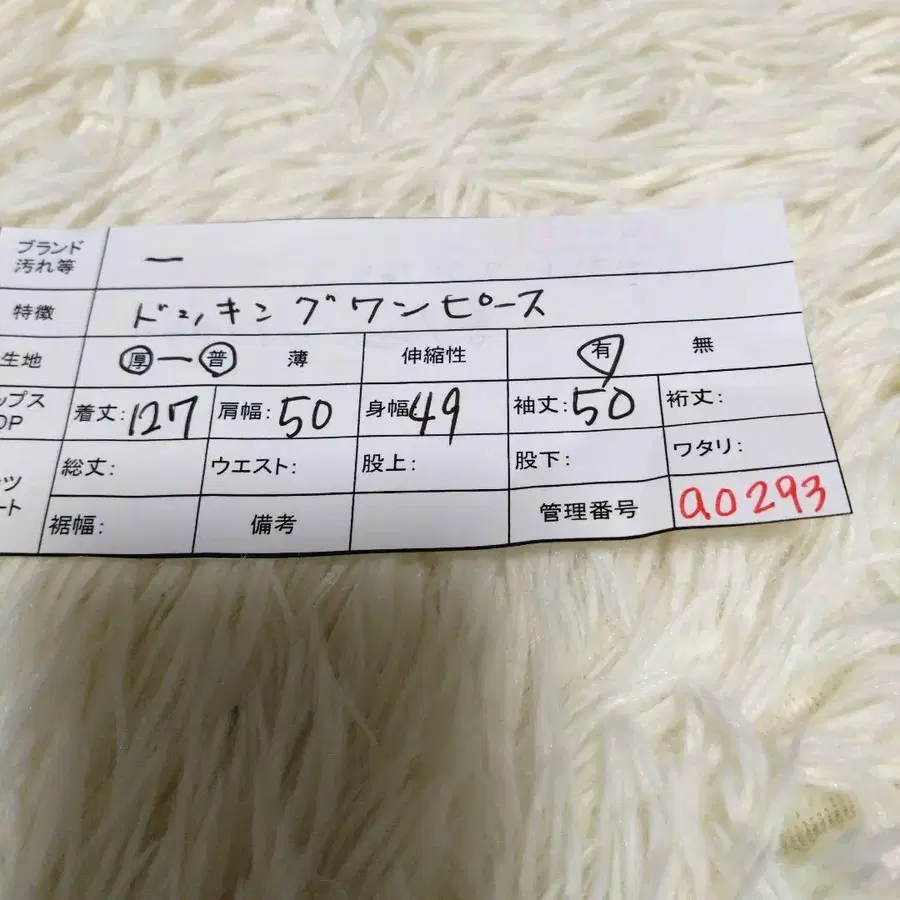 ブランド
汚れ等
ー
特徴 ドッキングワンピース
生地 厚ー普 薄 伸縮性 有 無
ップス
OP
着丈:127 肩幅:50 身幅:49 袖丈:50 裄丈:
ツ
ート
総丈: ウエスト: 股上: 股下: ワタリ:
裾幅: 備考 管理番号 a0293